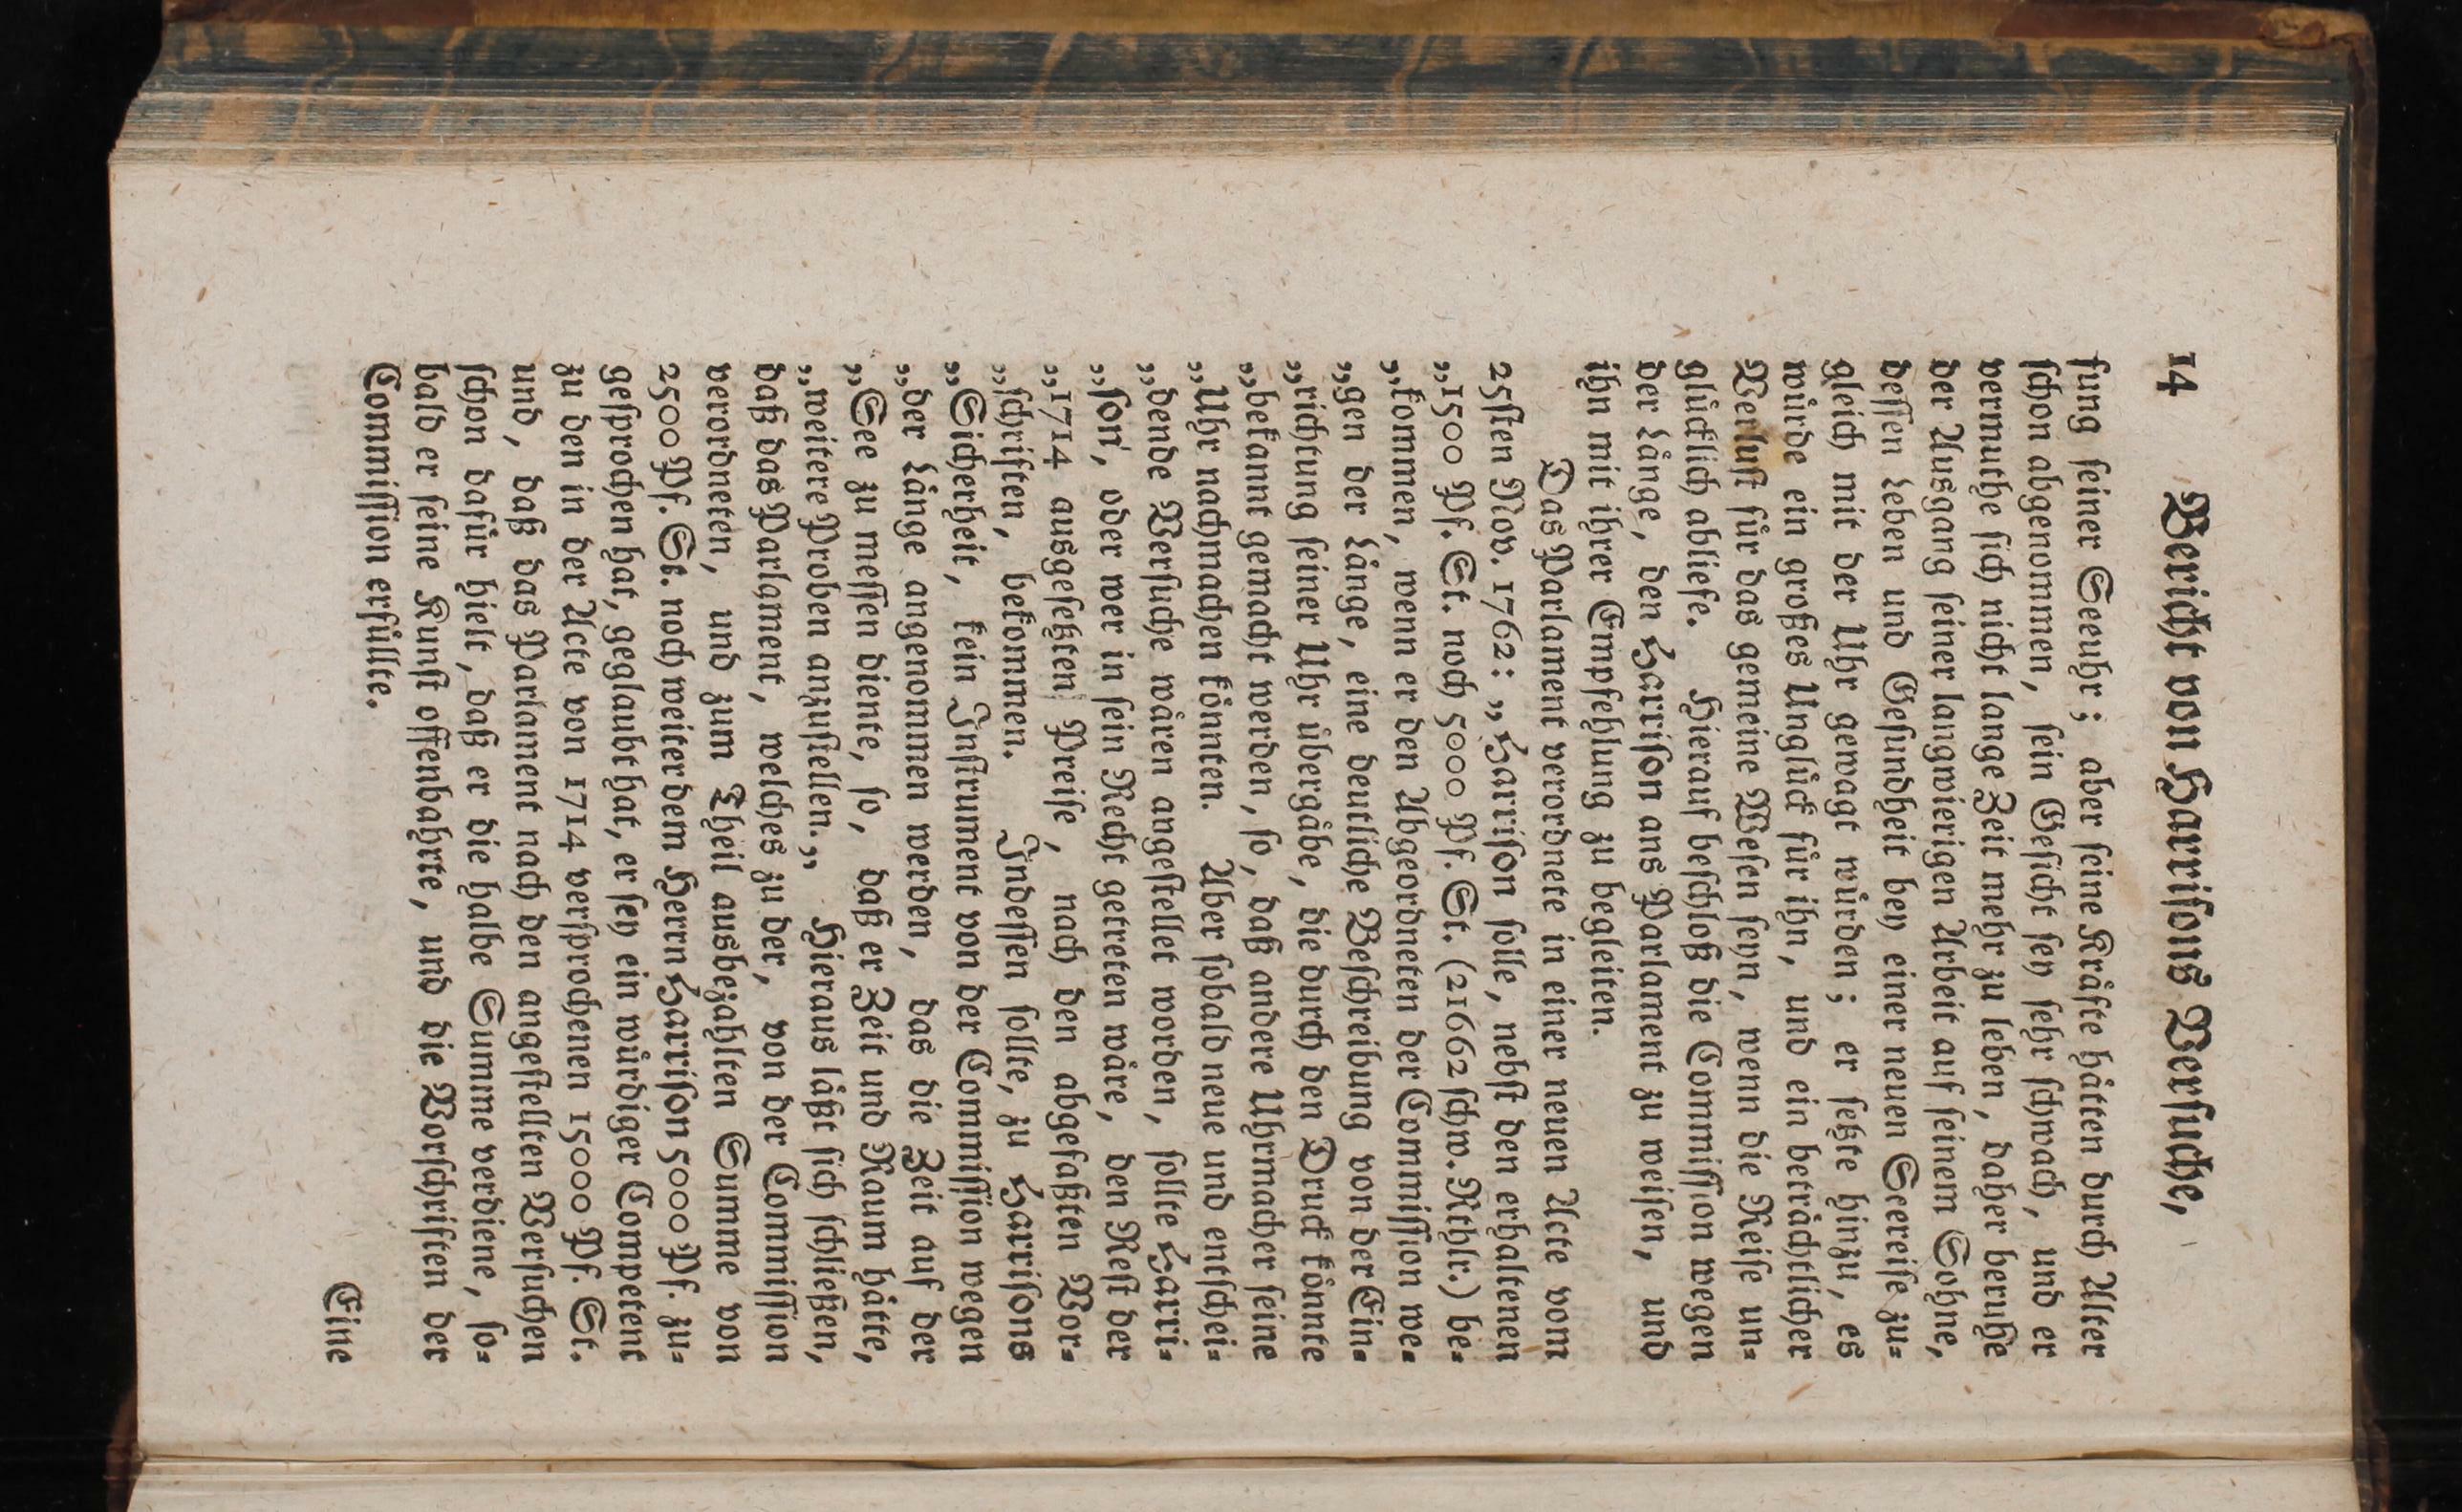 14 Bericht von Harrisons Versuche,
fung seiner Seeuhr; aber seine Kräfte hätten durch Alter
schon abgenommen, sein Gesicht sey sehr schwach, und er
vermuthe sich nicht lange Zeit mehr zu leben, daher beruhe
der Ausgang seiner langwierigen Arbeit auf seinem Sohne,
dessen Leben und Gesundheit bey einer neuen Seereise zu-
gleich mit der Uhr gewagt würden; er setzte hinzu, es
würde ein großes Unglück für ihn, und ein beträchtlicher
Verlust für das gemeine Wesen seyn, wenn die Reise un-
glücklich abliefe. Hierauf beschloß die Commission wegen
der Länge, den Harrison ans Parlament zu weisen, und
ihn mit ihrer Empfehlung zu begleiten.
Das Parlament verordnete in einer neuen Acte vom
25sten Nov. 1762: „Harrison solle, nebst den erhaltenen
„1500 Pf. St. noch 5000 Pf. St. (21662 schw. Rthlr.) be-
„kommen, wenn er den Abgeordneten der Commission we-
„gen der Länge, eine deutliche Beschreibung von der Ein-
„richtung seiner Uhr übergäbe, die durch den Druck könnte
„bekannt gemacht werden, so, daß andere Uhrmacher seine
„Uhr nachmachen könnten. Aber sobald neue und entschei-
„dende Versuche wären angestellet worden, sollte Harri-
„son, oder wer in sein Recht getreten wäre, den Rest der
„1714 ausgesetzten Preise, nach den abgefaßten Vor-
„schriften, bekommen. Indessen sollte, zu Harrisons
„Sicherheit, kein Instrument von der Commission wegen
„der Länge angenommen werden, das die Zeit auf der
„See zu messen diente, so, daß er Zeit und Raum hätte,
„weitere Proben anzustellen.„ Hieraus läßt sich schließen,
daß das Parlament, welches zu der, von der Commission
verordneten, und zum Theil ausbezahlten Summe von
2500 Pf. St. noch weiter dem Herrn Harrison 5000 Pf. zu-
gesprochen hat, geglaubt hat, er sey ein würdiger Competent
zu den in der Acte von 1714 versprochenen 15000 Pf. St.
und, daß das Parlament nach den angestellten Versuchen
schon dafür hielt, daß er die halbe Summe verdiene, so-
bald er seine Kunst offenbahrte, und die Vorschriften der
Commission erfüllte.
Eine